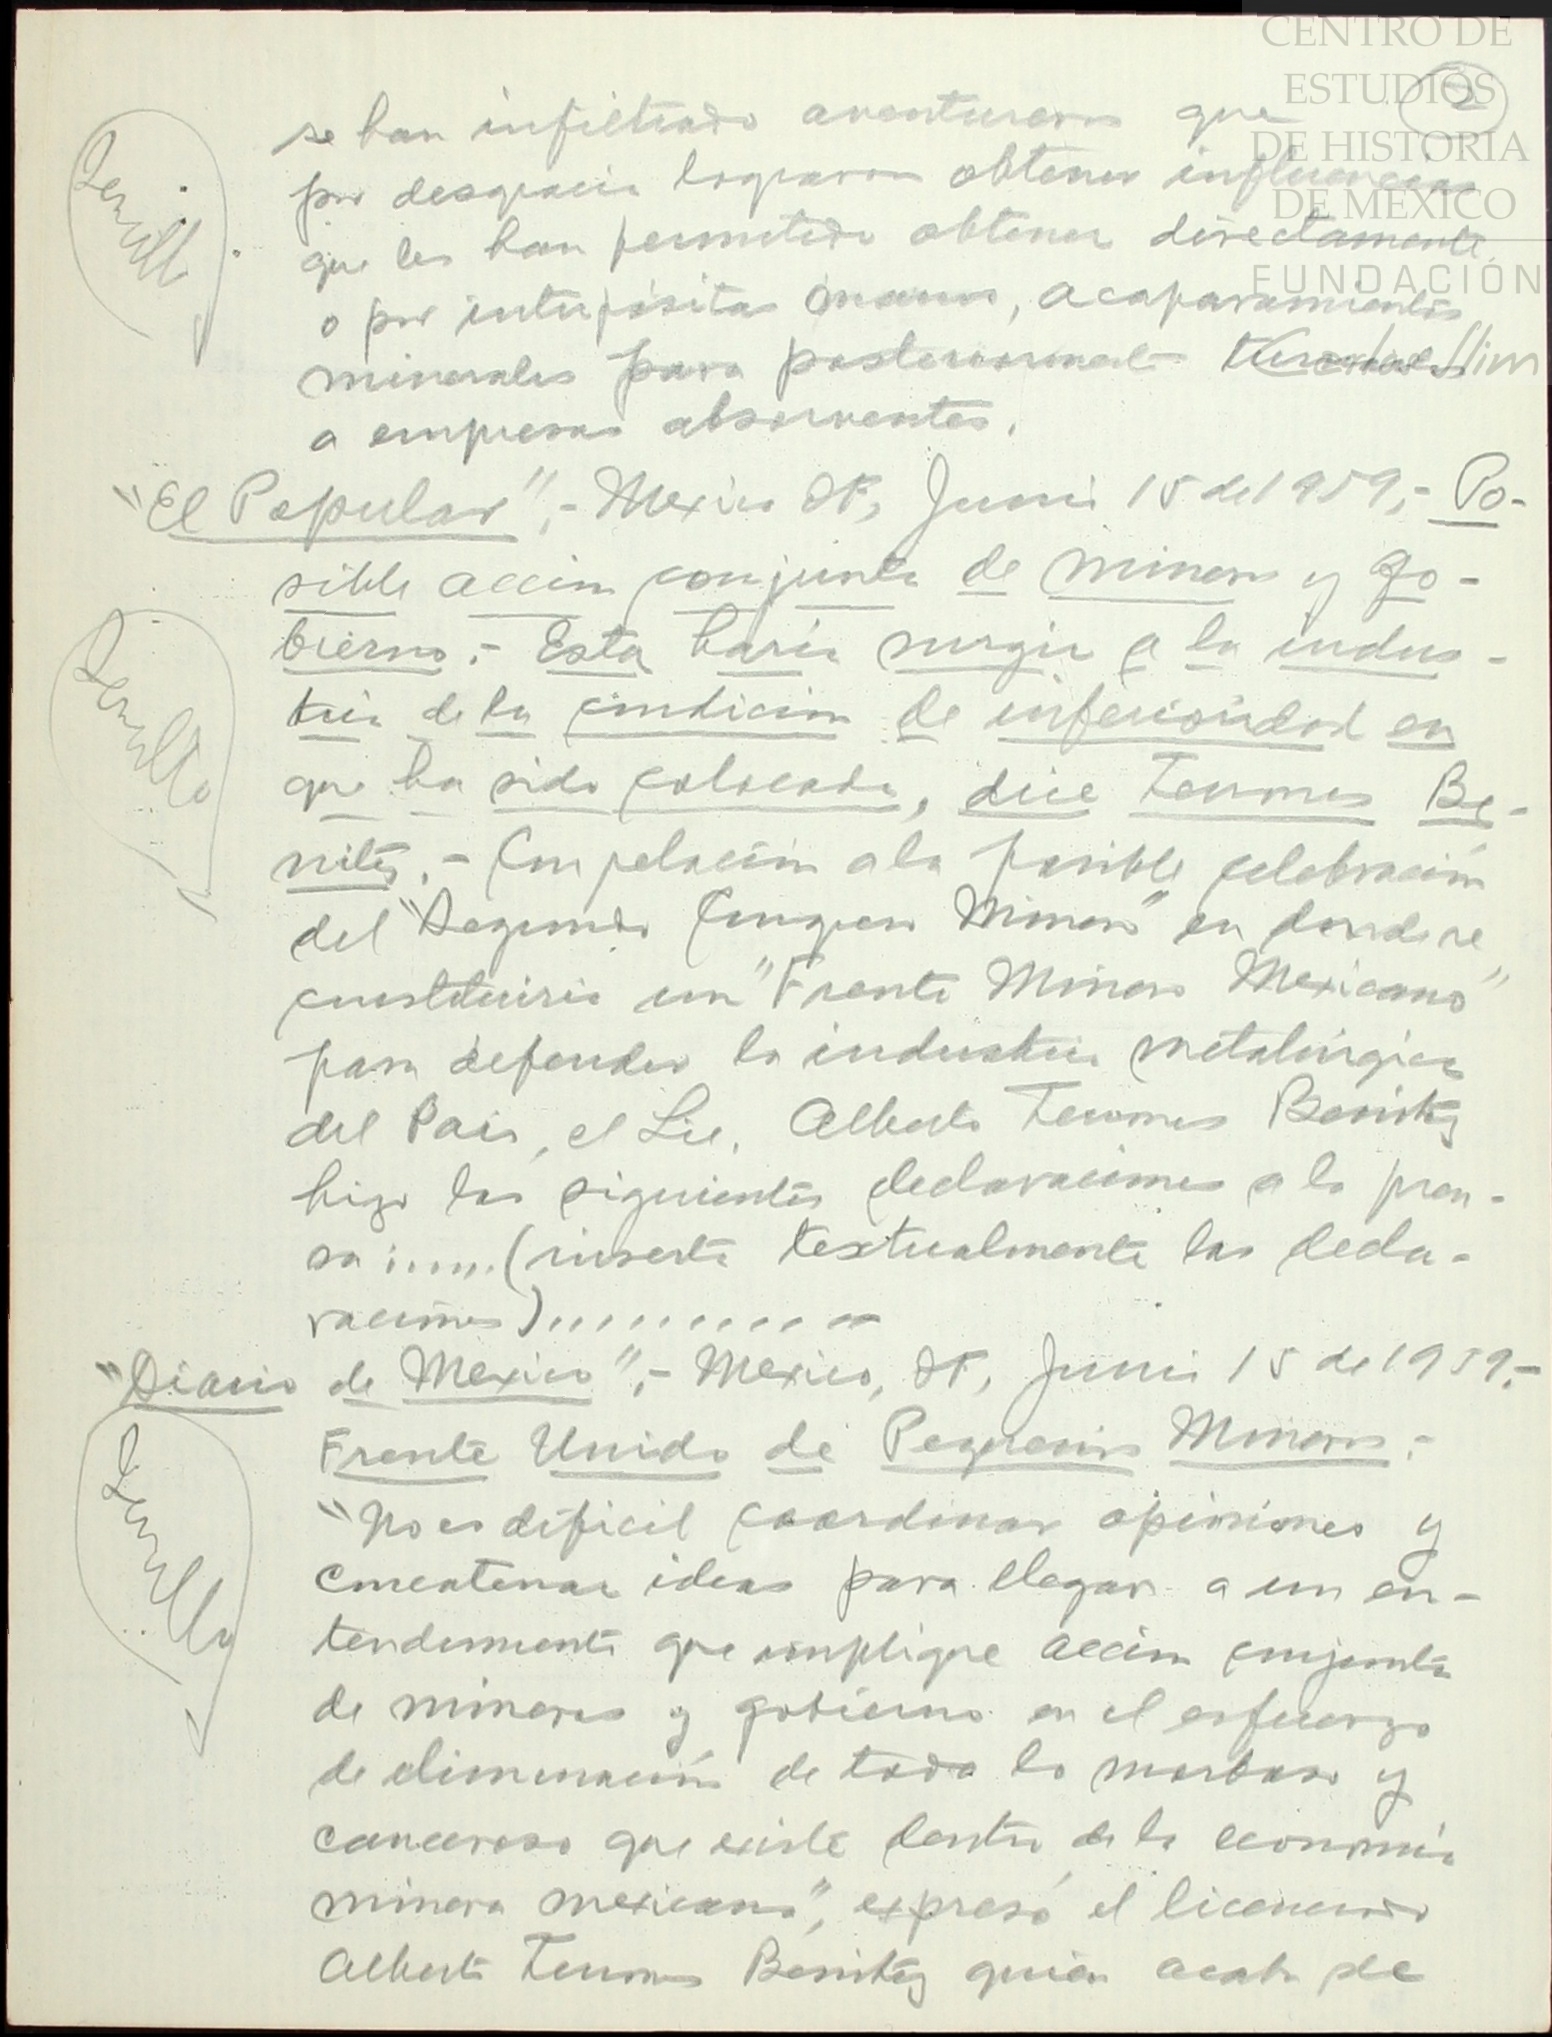 CENTRO DE
ESTUDIOS
DE HISTORIA
DE MEXICO
FUNDACIÓN
2
se han infiltrado aventureros que
por desgracia lograron obtener influencias
que les han permitido obtener directamente
o por interpósitas manos, acaparamientos
minerales para posteriormente
a empresas absorventes.
Sencillo
"El Popular".- Mexico DF, Junio 15 de 1959.- Po-
sible accion conjunta de mineros y go-
bierno.- Esta haria surgir a la indus-
tria de la condicion de inferioridad en
que ha sido colocada, dice Terrones Be-
nitez.- Con relación a la posible celebración
del "Segundo Congreso Minero" en donde se
constituiria un "Frente Minero Mexicano"
para defender la industria metalúrgica
del Pais, el Lic. Alberto Terrones Benitez
hizo las siguientes declaraciones a la pren-
sa:.....(inserta textualmente las decla-
raciones)..........
Sencillo
"Diario de Mexico".- Mexico, DF, Junio 15 de 1959.-
Frente Unido de Pequeños Mineros.-
"No es dificil coordinar opiniones y
concatenar ideas para llegar a un en-
tendimiento que implique accion conjunta
de mineros y gobierno en el esfuerzo
de eliminación de todo lo morboso y
canceroso que existe dentro de la economía
minera mexicana", expresó el licenciado
Alberto Terrones Benitez quien acaba de
Sencillo